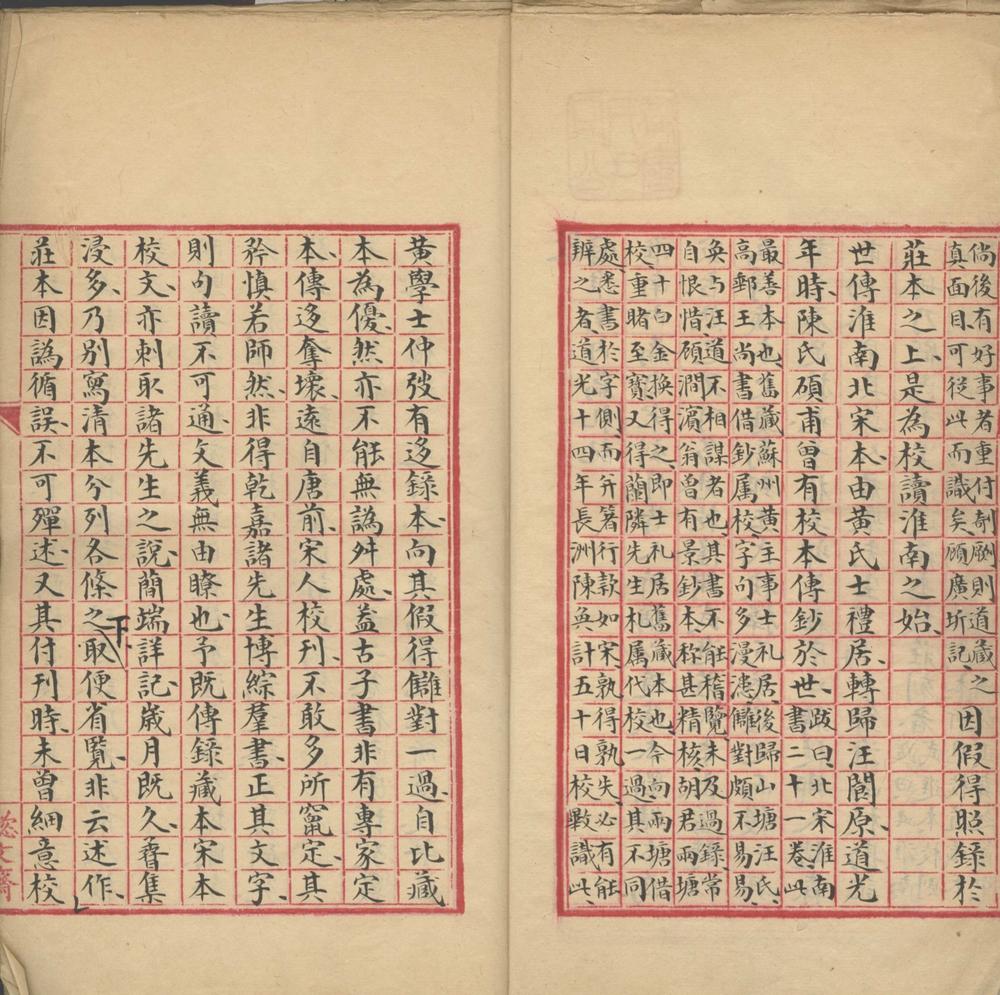 倘後有好事者重付剞劂則道藏之
真面目可從此而識矣顧廣圻記
因假得照錄於
莊本之上是為校讀淮南之始
世傳淮南北宋本由黃氏士禮居轉歸汪閬原道光
年時陳氏碩甫曾有校本傳鈔於世
跋曰北宋淮南
書二十一卷此
最善本也舊藏蘇州黃主事士礼居後歸山塘汪氏
高郵王尚書借鈔属校字句多漫漶讎對頗不易易
奐与汪道不相謀者也其書不能稽覽未及過錄常
自恨惜顧澗濵翁曾有景鈔本称甚精核胡君雨塘
四十白金換得之即士礼居舊藏本也今向雨塘借
校重睹至寳又得蘭隣先生札属代校一過其不同
處悉書於字側而并箸行款如宋孰得孰失必有能
辨之者道光十四年長洲陳奐計五十日校斁識此
黃學士仲弢有迻錄本向其假得讎對一過自比藏
本為優然亦不能無譌舛處葢古子書非有專家定
本傳迻奪壞遠自唐前宋人校刊不敢多所竄定其
矜慎若師然非得乾嘉諸先生博綜羣書正其文字
則句讀不可通文義無由瞭也予既傳錄藏本宋本
校文亦刺取諸先生之說簡端詳記歲月既久眷集
浸多乃別寫清本分列各條之下取便省覽非云述作
莊本因譌循誤不可殫述又其付刊時未曾細意校